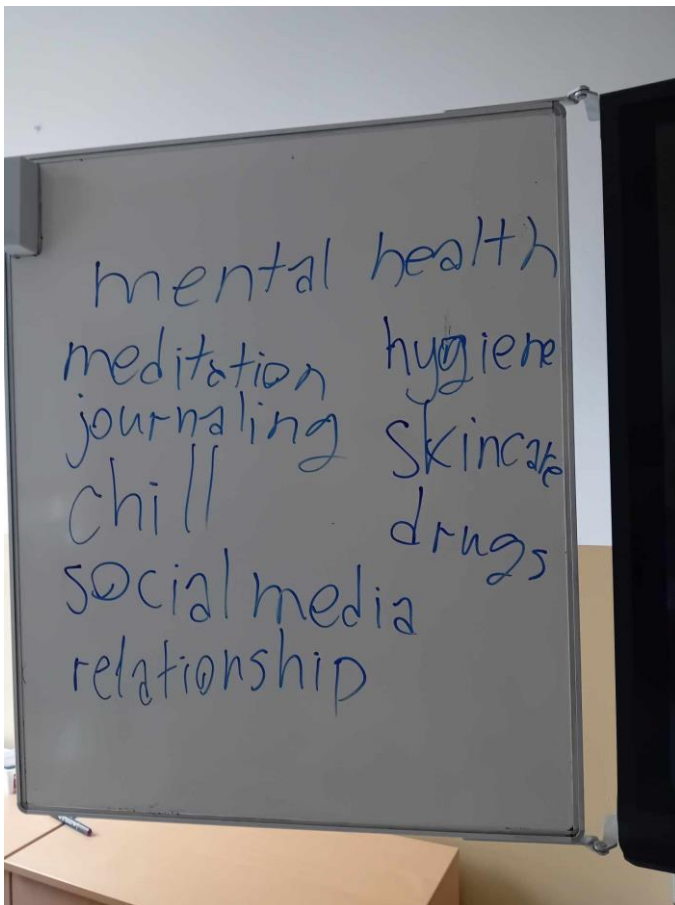 mental health
meditation
journaling
chill
social media
relationship
hygiene
skincare
drugs